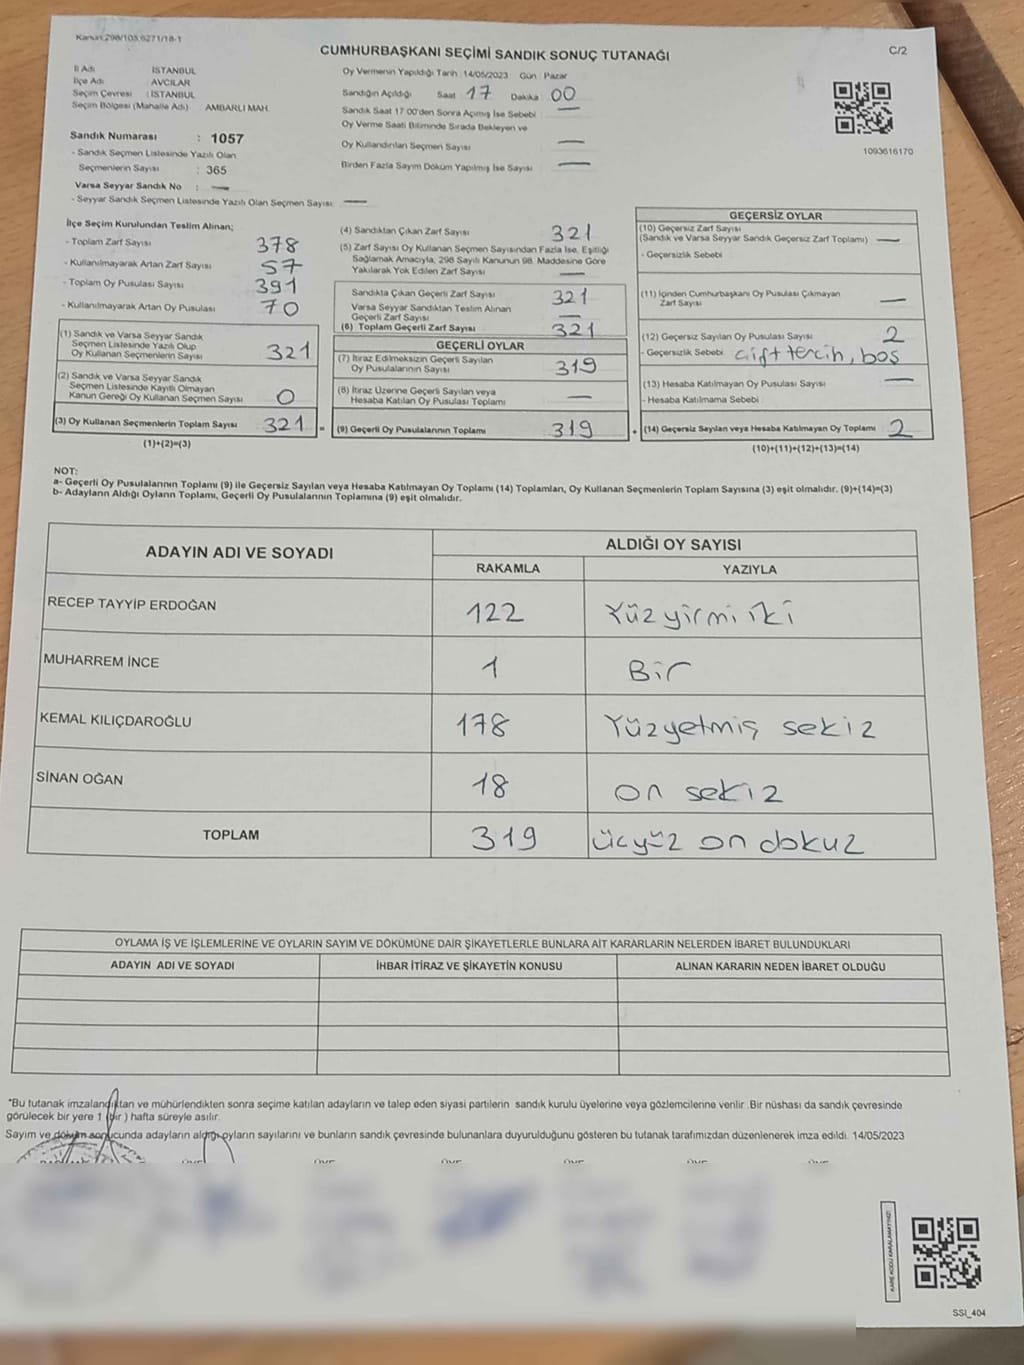 Kanun:298/105.6271/18-1
C/2
CUMHURBAŞKANI SEÇİMİ SANDIK SONUÇ TUTANAĞI
İl Adı İSTANBUL
İlçe Adı : AVCILAR
Seçim Çevresi : İSTANBUL
Seçim Bölgesi (Mahalle Adı) AMBARLI MAH.
Sandık Numarası : 1057
- Sandık Seçmen Listesinde Yazılı Olan
Seçmenlerin Sayısı : 365
Varsa Seyyar Sandık No : —
- Seyyar Sandık Seçmen Listesinde Yazılı Olan Seçmen Sayısı: —
Oy Vermenin Yapıldığı Tarih :14/05/2023 Gün : Pazar
Sandığın Açıldığı Saat 17 Dakika 00
Sandık Saat 17:00'den Sonra Açımış İse Sebebi —
Oy Verme Saati Bitiminde Sırada Bekleyen ve
Oy Kullandırılan Seçmen Sayısı —
Birden Fazla Sayım Döküm Yapılmış İse Sayısı —
1093616170
İlçe Seçim Kurulundan Teslim Alınan;
- Toplam Zarf Sayısı 378
- Kullanılmayarak Artan Zarf Sayısı 57
- Toplam Oy Pusulası Sayısı 391
- Kullanılmayarak Artan Oy Pusulası 70
(1) Sandık ve Varsa Seyyar Sandık
Seçmen Listesinde Yazılı Olup
Oy Kullanan Seçmenlerin Sayısı 321
(2) Sandık ve Varsa Seyyar Sandık
Seçmen Listesinde Kayıtlı Olmayan
Kanun Gereği Oy Kullanan Seçmen Sayısı 0
(3) Oy Kullanan Seçmenlerin Toplam Sayısı 321 =
(1)+(2)=(3)
(4) Sandıktan Çıkan Zarf Sayısı 321
(5) Zarf Sayısı Oy Kullanan Seçmen Sayısından Fazla İse, Eşitliği
Sağlamak Amacıyla, 298 Sayılı Kanunun 98. Maddesine Göre
Yakılarak Yok Edilen Zarf Sayısı —
Sandıkta Çıkan Geçerli Zarf Sayısı 321
Varsa Seyyar Sandıktan Teslim Alınan
Geçerli Zarf Sayısı —
(6) Toplam Geçerli Zarf Sayısı 321
GEÇERLİ OYLAR
(7) İtiraz Edilmeksizin Geçerli Sayılan
Oy Pusulalarının Sayısı 319
(8) İtiraz Üzerine Geçerli Sayılan veya
Hesaba Katılan Oy Pusulası Toplamı —
(9) Geçerli Oy Pusulalarının Toplamı 319 +
GEÇERSİZ OYLAR
(10) Geçersiz Zarf Sayısı
(Sandık ve Varsa Seyyar Sandık Geçersiz Zarf Toplamı) —
- Geçersizlik Sebebi
(11) İçinden Cumhurbaşkanı Oy Pusulası Çıkmayan
Zarf Sayısı —
(12) Geçersiz Sayılan Oy Pusulası Sayısı 2
- Geçersizlik Sebebi çift tercih, boş
(13) Hesaba Katılmayan Oy Pusulası Sayısı —
- Hesaba Katılmama Sebebi
(14) Geçersiz Sayılan veya Hesaba Katılmayan Oy Toplamı 2
(10)+(11)+(12)+(13)=(14)
NOT:
a- Geçerli Oy Pusulalarının Toplamı (9) ile Geçersiz Sayılan veya Hesaba Katılmayan Oy Toplamı (14) Toplamları, Oy Kullanan Seçmenlerin Toplam Sayısına (3) eşit olmalıdır. (9)+(14)=(3)
b- Adayların Aldığı Oyların Toplamı, Geçerli Oy Pusulalarının Toplamına (9) eşit olmalıdır.
ADAYIN ADI VE SOYADI ALDIĞI OY SAYISI
RAKAMLA YAZIYLA
RECEP TAYYİP ERDOĞAN 122 Yüzyirmi iki
MUHARREM İNCE 1 Bir
KEMAL KILIÇDAROĞLU 178 Yüzyetmiş sekiz
SİNAN OĞAN 18 on sekiz
TOPLAM 319 üçyüz on dokuz
OYLAMA İŞ VE İŞLEMLERİNE VE OYLARIN SAYIM VE DÖKÜMÜNE DAİR ŞİKAYETLERLE BUNLARA AİT KARARLARIN NELERDEN İBARET BULUNDUKLARI
ADAYIN ADI VE SOYADI İHBAR İTİRAZ VE ŞİKAYETİN KONUSU ALINAN KARARIN NEDEN İBARET OLDUĞU
*Bu tutanak imzalandıktan ve mühürlendikten sonra seçime katılan adayların ve talep eden siyasi partilerin sandık kurulu üyelerine veya gözlemcilerine verilir .Bir nüshası da sandık çevresinde
görülecek bir yere 1 (bir ) hafta süreyle asılır.
Sayım ve döküm sonucunda adayların aldığı oyların sayılarını ve bunların sandık çevresinde bulunanlara duyurulduğunu gösteren bu tutanak tarafımızdan düzenlenerek imza edildi. 14/05/2023
KARE KODU KARALAMAYINIZ!
SSI_404